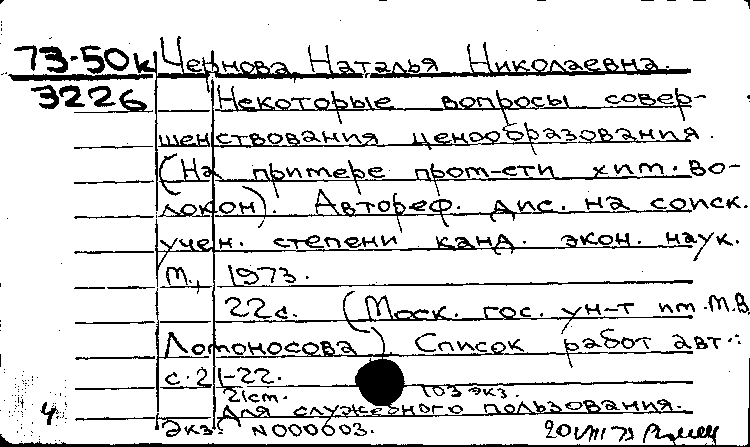 73-50к Чернова, Наталья Николаевна.
3226 Некоторые вопросы совер-
шенствования ценообразования.
(На примере пром-сти хим. во-
локон). Автореф. дис. на соиск.
учен. степени канд. экон. наук.
М., 1973.
22с. (Моск. гос. ун-т им. М.В.
Ломоносова) Список работ авт.:
с. 21-22.
21см. 103 экз.
Для служебного пользования.
4 Экз. N000003. 20 VIII 73